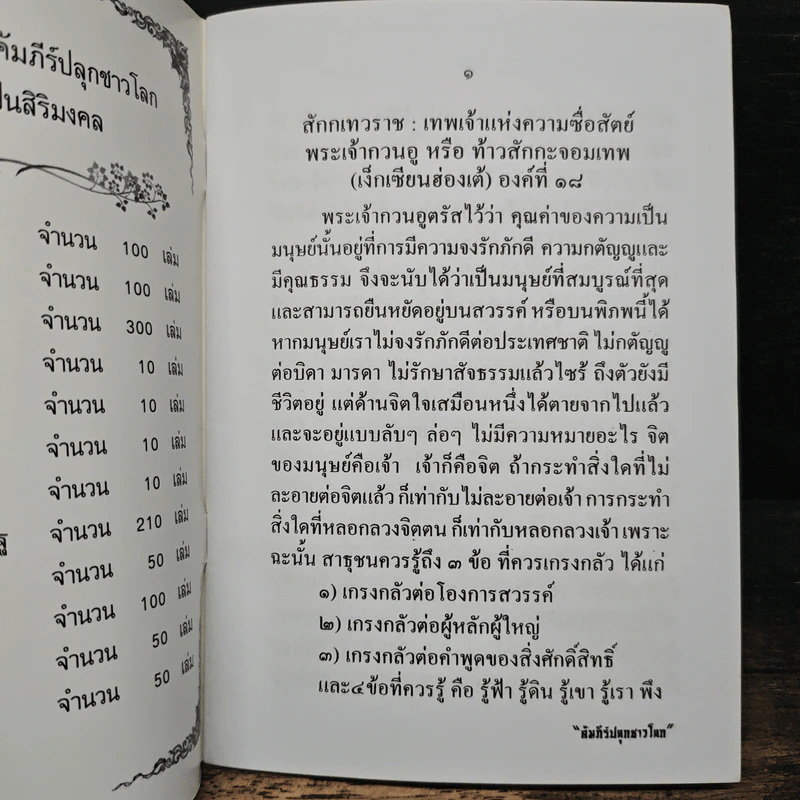 คัมภีร์ปลุกชาวโลก
เป็นสิริมงคล
จำนวน 100 เล่ม
จำนวน 100 เล่ม
จำนวน 300 เล่ม
จำนวน 10 เล่ม
จำนวน 10 เล่ม
จำนวน 10 เล่ม
จำนวน 10 เล่ม
จำนวน 210 เล่ม
จำนวน 50 เล่ม
จำนวน 100 เล่ม
จำนวน 50 เล่ม
จำนวน 50 เล่ม
๑
สักกเทวราช : เทพเจ้าแห่งความซื่อสัตย์
พระเจ้ากวนอู หรือ ท้าวสักกะจอมเทพ
(เง็กเซียนฮ่องเต้) องค์ที่ ๑๘
พระเจ้ากวนอูตรัสไว้ว่า คุณค่าของความเป็น
มนุษย์นั้นอยู่ที่การมีความจงรักภักดี ความกตัญญูและ
มีคุณธรรม จึงจะนับได้ว่าเป็นมนุษย์ที่สมบูรณ์ที่สุด
และสามารถยืนหยัดอยู่บนสวรรค์ หรือบนพิภพนี้ได้
หากมนุษย์เราไม่จงรักภักดีต่อประเทศชาติ ไม่กตัญญู
ต่อบิดา มารดา ไม่รักษาสัจธรรมแล้วไซร้ ถึงตัวยังมี
ชีวิตอยู่ แต่ด้านจิตใจเสมือนหนึ่งได้ตายจากไปแล้ว
และจะอยู่แบบลับๆ ล่อๆ ไม่มีความหมายอะไร จิต
ของมนุษย์คือเจ้า เจ้าก็คือจิต ถ้ากระทำสิ่งใดที่ไม่
ละอายต่อจิตแล้ว ก็เท่ากับไม่ละอายต่อเจ้า การกระทำ
สิ่งใดที่หลอกลวงจิตตน ก็เท่ากับหลอกลวงเจ้า เพราะ
ฉะนั้น สาธุชนควรรู้ถึง ๓ ข้อ ที่ควรเกรงกลัว ได้แก่
๑) เกรงกลัวต่อโองการสวรรค์
๒) เกรงกลัวต่อผู้หลักผู้ใหญ่
๓) เกรงกลัวต่อคำพูดของสิ่งศักดิ์สิทธิ์
และ๔ข้อที่ควรรู้ คือ รู้ฟ้า รู้ดิน รู้เขา รู้เรา พึง
"คัมภีร์ปลุกชาวโลก"